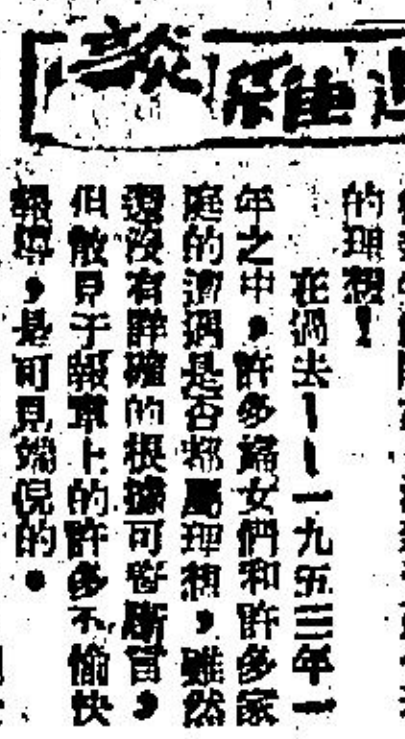 週雜談
的理想！
在過去——一九五三年一
年之中，許多婦女們和許多家
庭的遭遇是否都屬理想，雖然
還沒有詳確的根據可資斷言，
但散見于報章上的許多不愉快
報導，是可見端倪的。